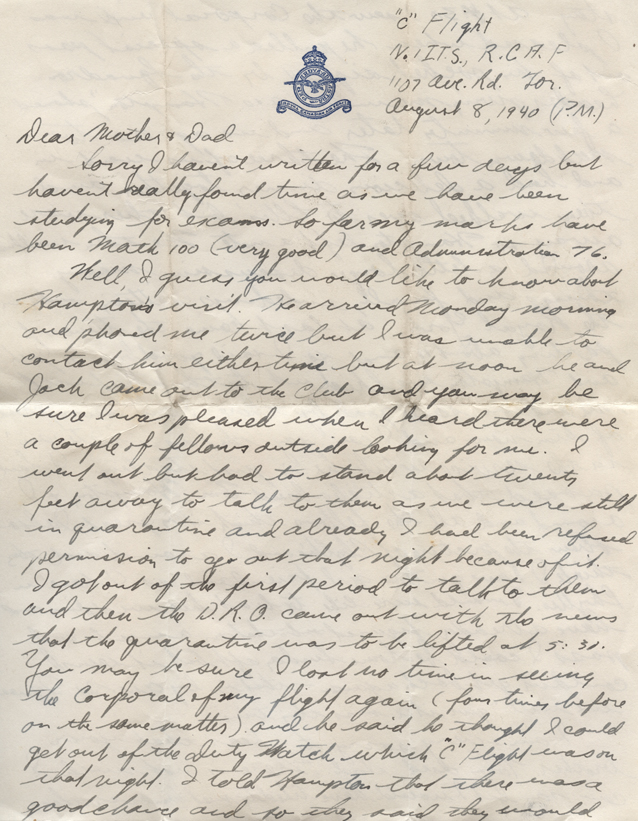 "C" Flight
No. 1 I.T.S., R.C.A.F
1107 Ave. Rd. Tor.
August 8, 1940 (P.M.)
Dear Mother & Dad
Sorry I haven't written for a few days but
haven't really found time as we have been
studying for exams. So far my marks have
been Math 100 (very good) and Administration 76.
Well, I guess you would like to know about
Hampton's visit. He arrived Monday morning
and phoned me twice but I was unable to
contact him either time but at noon he and
Jack came out to the Club and you may be
sure I was pleased when I heard there were
a couple of fellows outside looking for me. I
went out but had to stand about twenty
feet away to talk to them as we were still
in quarantine and already I had been refused
permission to go out that night because of it.
I got out of the first period to talk to them
and then the D.R.O. came out with the news
that the quarantine was to be lifted at 5:30.
You may be sure I lost no time in seeing
the Corporal of my flight again (four times before
on the same matter) and he said he thought I could
get out of the duty Watch which "C" Flight was on
that night. I told Hampton that there was a
good chance and so they said they would